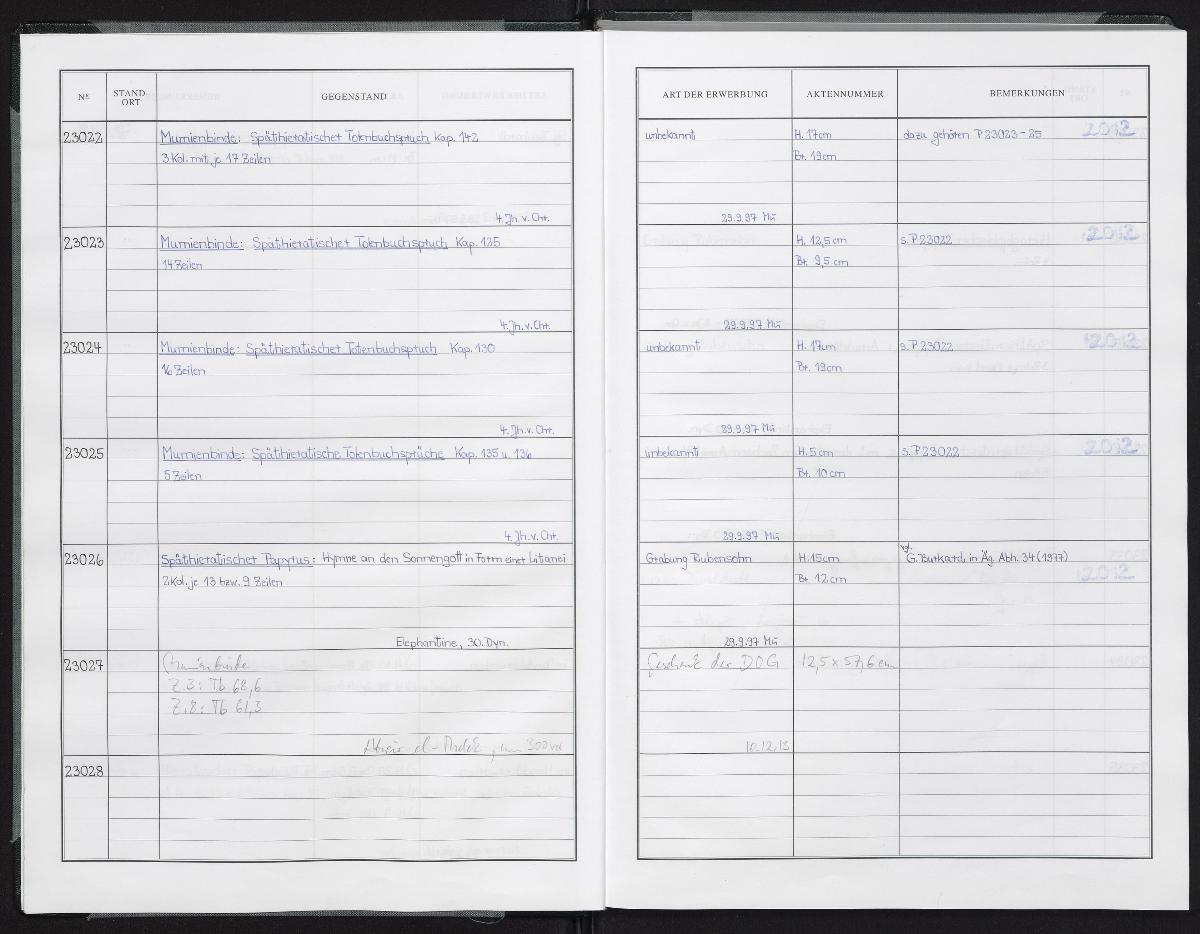 Nº STAND-ORT GEGENSTAND ART DER ERWERBUNG AKTENNUMMER BEMERKUNGEN
23022 Mumienbinde: Späthieratischer Totenbuchspruch Kap. 142 unbekannt H. 17cm dazu gehören P 23023-25 2012
3 Kol. mit je 17 Zeilen Br. 19cm
4. Jh. v. Chr. 29.9.97 Mü
23023 Mumienbinde: Späthieratischer Totenbuchspruch Kap. 125 H. 12,5cm s. P 23022 2012
14 Zeilen Br. 9,5cm
4. Jh. v. Chr. 29.9.97 Mü
23024 Mumienbinde: Späthieratischer Totenbuchspruch Kap. 130 unbekannt H. 17cm s. P 23022 2012
16 Zeilen Br. 19cm
4. Jh. v. Chr. 29.9.97 Mü
23025 Mumienbinde: Späthieratische Totenbuchsprüche Kap. 135 u. 136 unbekannt H. 5cm s. P 23022 2012
5 Zeilen Br. 10cm
4. Jh. v. Chr. 29.9.97 Mü
23026 Späthieratischer Papyrus: Hymne an den Sonnengott in Form einer Litanei Grabung Rubensohn H. 15cm vgl. G. Burkard, in Äg. Abh. 34 (1977)
2 Kol. je 13 bzw. 9 Zeilen Br 12cm 2012
Elephantine, 30. Dyn. 29.9.97 Mü
23027 Mumienbinde Geschenk der DOG 12,5 x 57,6 cm
Z. 3: Tb 68,6
Z. 8: Tb 61,3
Abusir el-Meleq, um 300 vor 10.12.13
23028